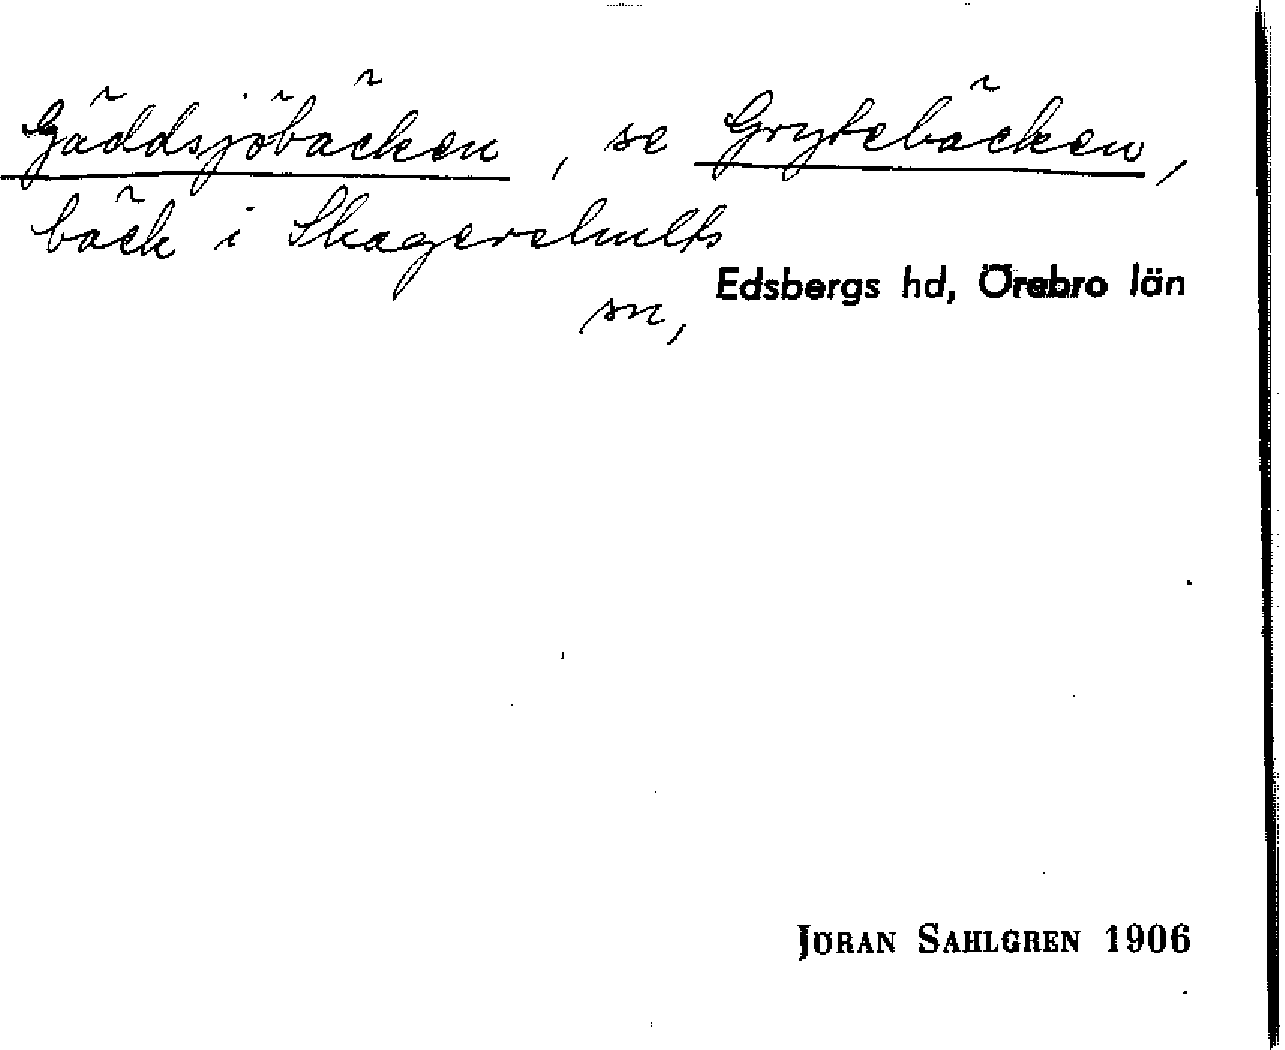 Gäddsjöbäcken, se Grytebäcken,
bäck i Skagershults
sn, Edsbergs hd, Örebro län
JÖRAN SAHLGREN 1906